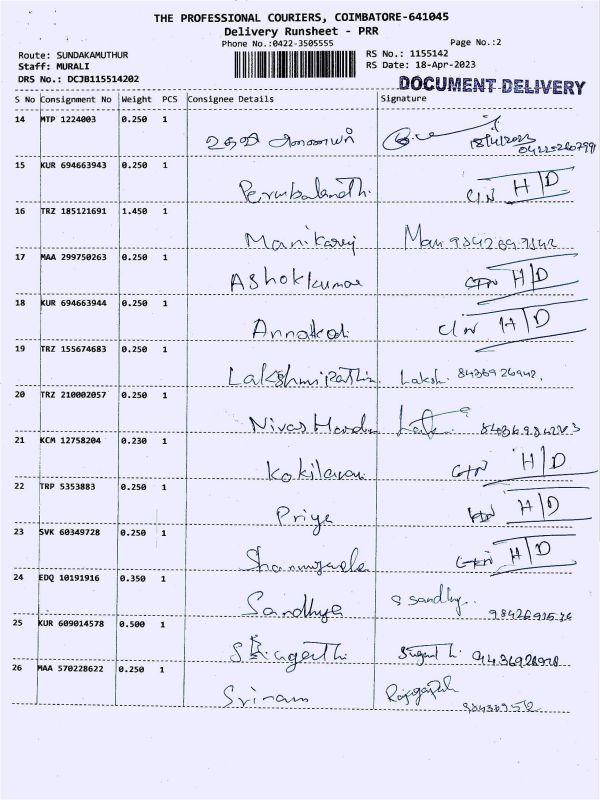 THE PROFESSIONAL COURIERS, COIMBATORE-641045
Delivery Runsheet - PRR
Phone No.:0422-3505555 Page No.:2
Route: SUNDAKAMUTHUR RS No.: 1155142
Staff: MURALI RS Date: 18-Apr-2023
DRS No.: DCJB115514202
DOCUMENT DELIVERY
S No Consignment No Weight PCS Consignee Details Signature
14 MTP 1224003 0.250 1
18/4/2023
15 KUR 694663943 0.250 1
H/D
16 TRZ 185121691 1.450 1
Manikaraj Mani
17 MAA 299750263 0.250 1
Ashokkumar H/D
18 KUR 694663944 0.250 1
Annakodi H/D
19 TRZ 155674683 0.250 1
Laksh. 8436926942.
20 TRZ 210002057 0.250 1
Nivas
21 KCM 12758204 0.230 1
H/D
22 TRP 5353883 0.250 1
Priya H/D
23 SVK 60349728 0.250 1
H/D
24 EDQ 10191916 0.350 1
Sandhya S Sandhy
25 KUR 609014578 0.500 1
26 MAA 570228622 0.250 1
Sriram